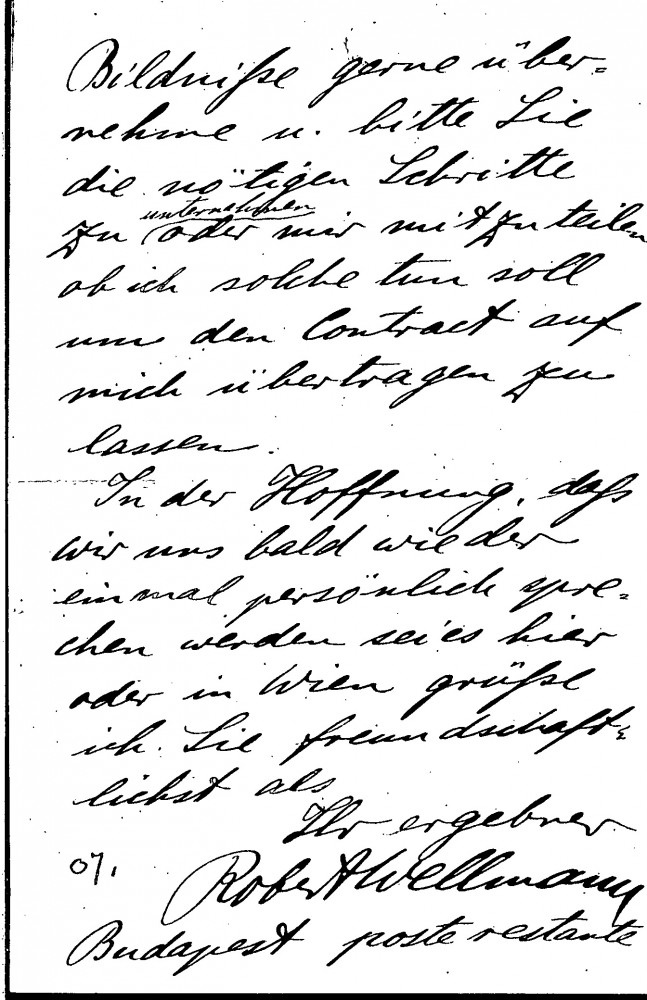 Bildniße gerne über-
nehme u. bitte Sie
die nötigen Schritte
unternehmen
zu oder mir mitzuteilen
ob ich solche tun soll
um den Contract auf
mich übertragen zu
lassen.
In der Hoffnung, daß
wir uns bald wieder
einmal persönlich spre-
chen werden sei es hier
oder in Wien grüße
ich Sie freundschaft-
lichst als
Ihr ergebner
07.
Robert Wellmann
Budapest poste restante